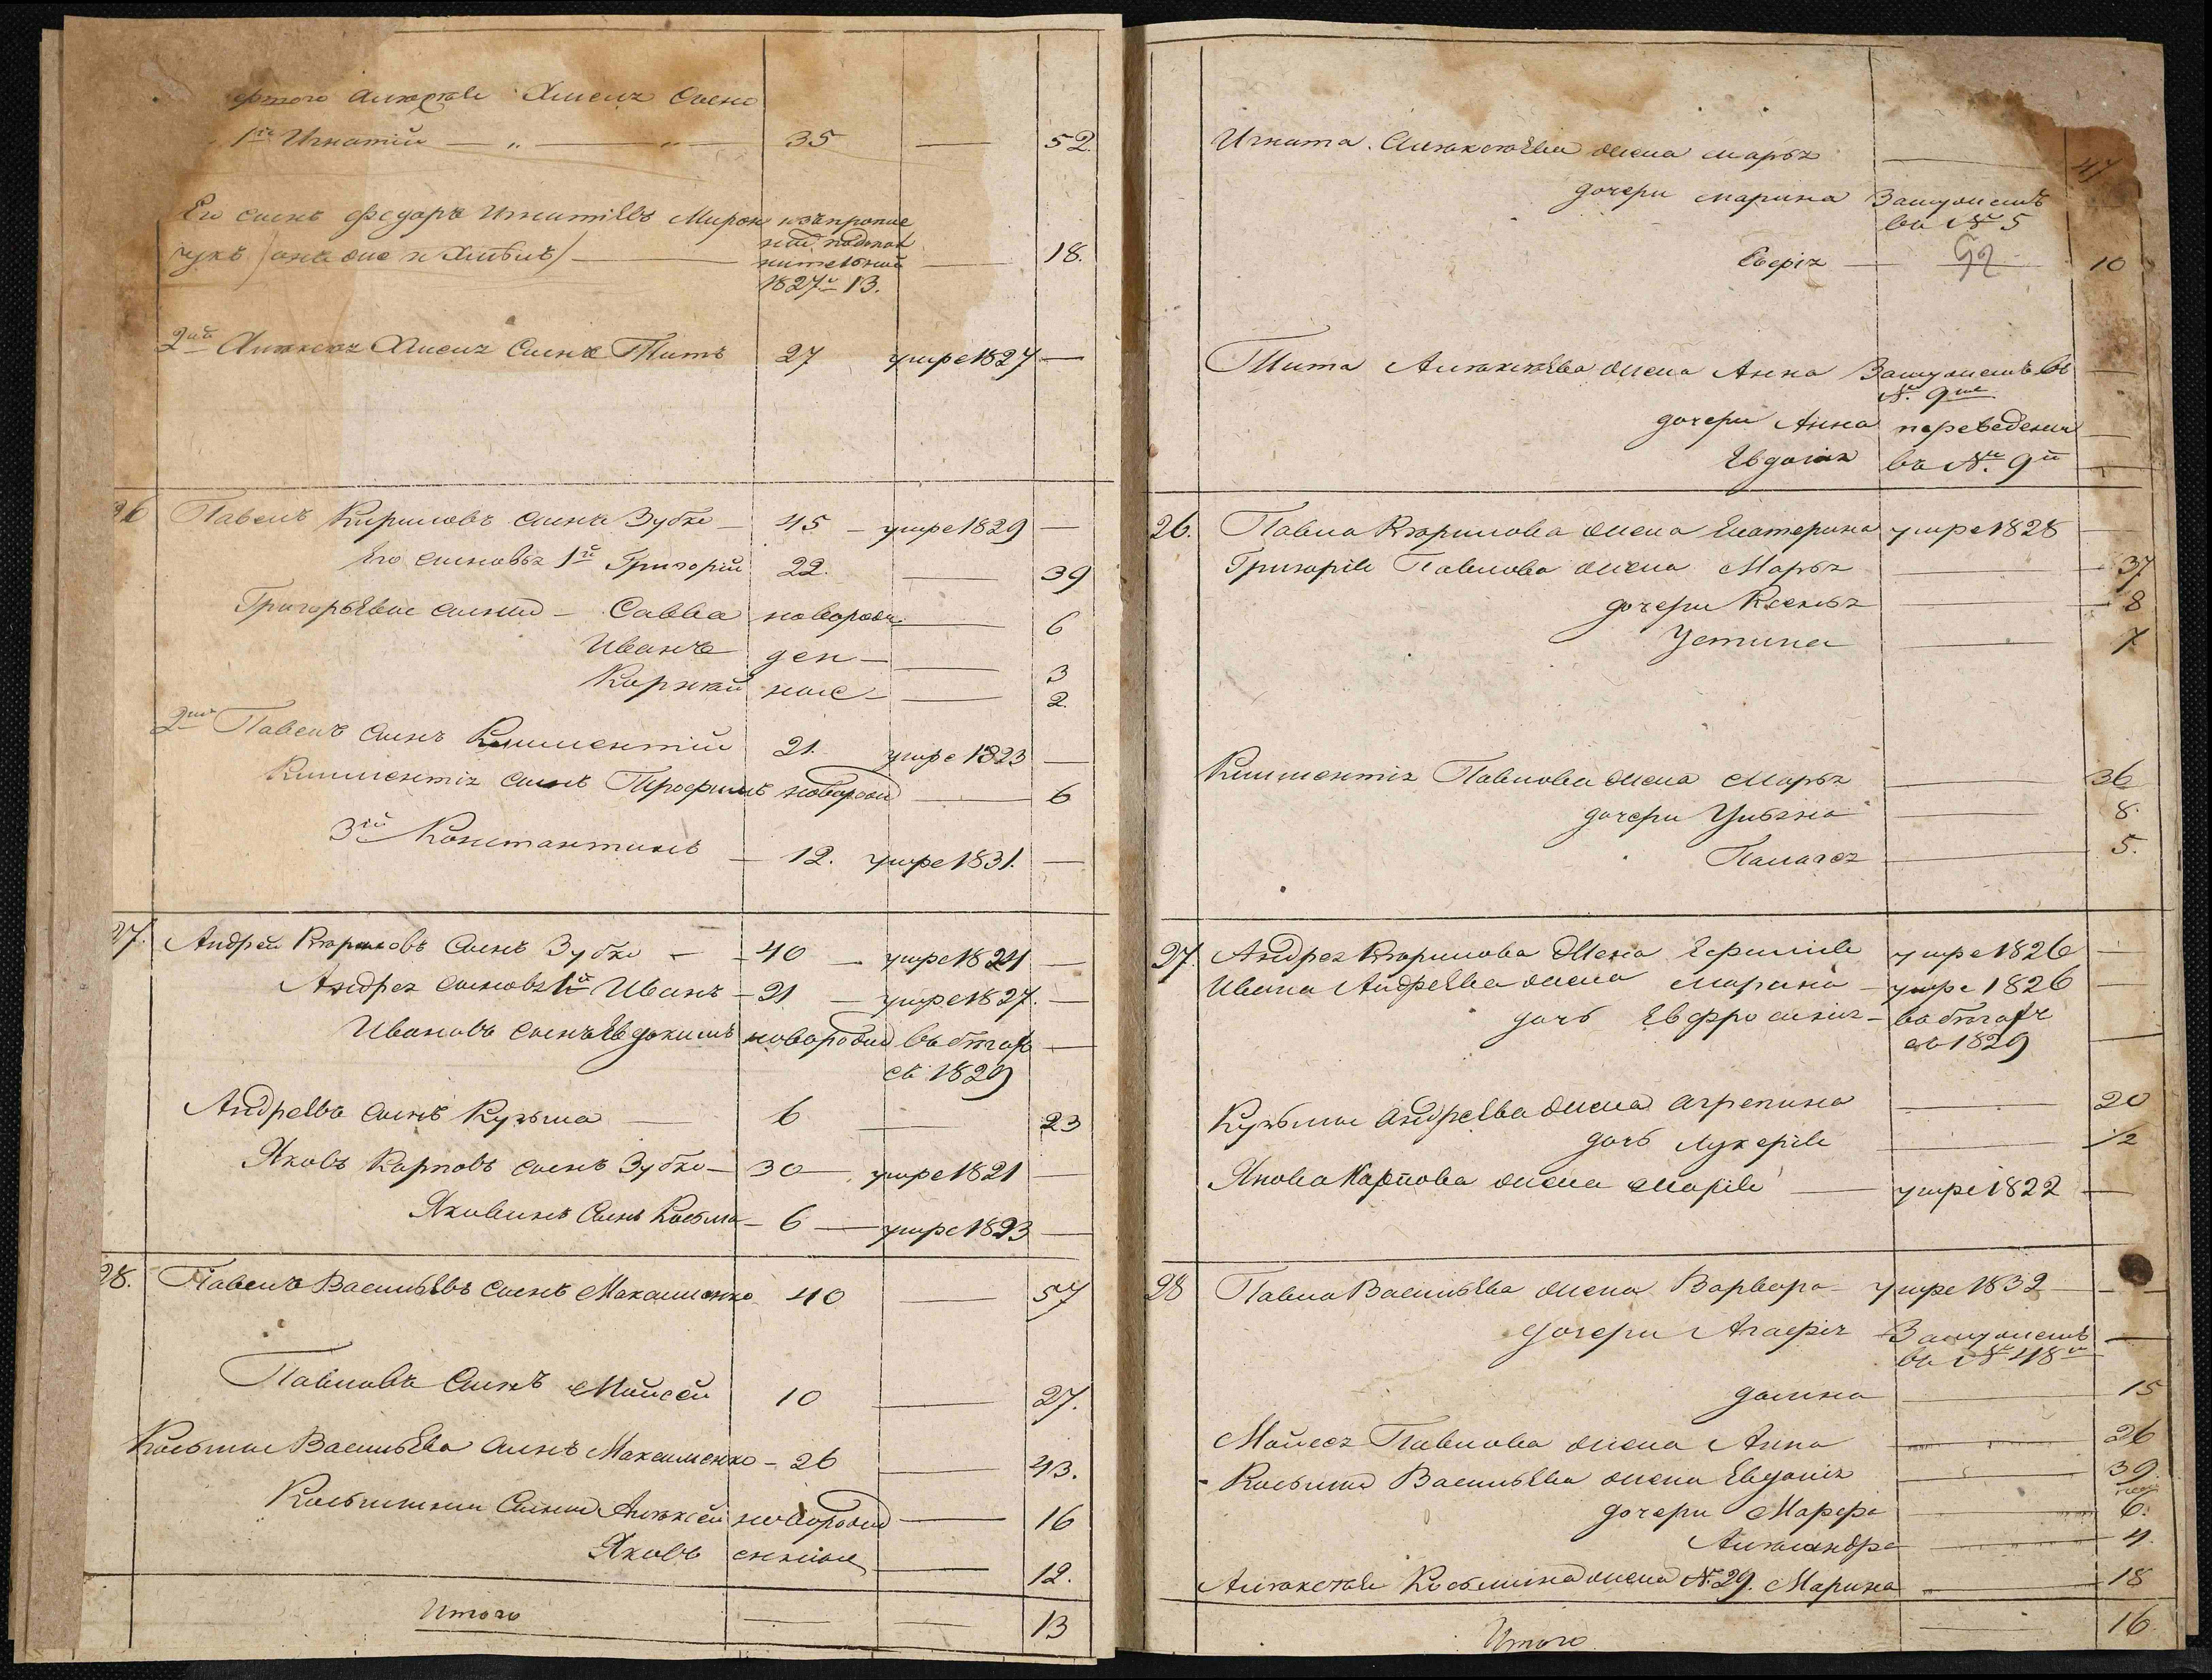 Алексея сынъ
1й Игнатій — „ — „ — 35 — 52.
Его сынъ Федоръ Игнатіевъ Мирон изъ пропис
чукъ /онъ же и / — 18.
1827й 13.
2й Алексея сынъ Титъ 27 умре 1827 —
26 Павелъ Кириловъ сынъ Зубко — 45 — умре 1829 —
Его сыновья 1й Григорій 22. — 39
Григорьевы сыны — Савва новорож — 6
Иванъ ден — — 3
Корнѣй ные — — 2.
2й Павелъ сынъ Климентій 21. умре 1823 —
Климентія сынъ Трофимъ новорож — 6
3й Константинъ — 12. умре 1831. —
27. Андрей Кириловъ сынъ Зубко — 40 — умре 1824 —
Андрея сыновья 1й Иванъ — 21 — умре 1827. —
Ивановъ сынъ Евдокимъ новорож въ бѣгах —
съ 1829
Андреевъ сынъ Кузьма — 6 — 23
Яковъ Карповъ сынъ Зубко — 30 — умре 1821 —
Яковинъ сынъ Косьма — 6 — умре 1823 —
28. Павелъ Васильевъ сынъ Максименко 40 — 57
Павловъ сынъ Мойсей 10 — 27.
Косьма Васильева сынъ Максименко — 26 — 43.
Косьмины сыны Алексей новорож — 16
Яковъ енные — 12.
Итого — — 13
Игната Алексеева жена Марья — 47
дочери Марина Замужемъ
въ № 5
— 10
Тита Алексеева жена Анна Замужемъ въ —
№ 9м
дочери Анна переведены —
Евдокія въ № 9й —
26. Павла Кирилова жена Екатерина умре 1828 —
Григорія Павлова жена Марья — 37
дочери Ксенья — 8
Устина — 7
Климентія Павлова жена Марья — 36
дочери Ульяна — 8.
Палагея — 5.
27. Андрея Кирилова жена Ефимія умре 1826 —
Ивана Андреева жена Марина — умре 1826 —
дочь Евфросинія — въ бѣгах
съ 1829 —
Кузьмы Андреева жена Агрепина — 20
дочь Лукерія — 1/2
Якова Карпова жена Марія — умре 1822 —
28 Павла Васильева жена Варвара — умре 1832 —
дочери Агафія Замужемъ —
въ № 48м
Домна — 15
Мойсея Павлова жена Анна — 26
Косьмы Васильева жена Евдокія — 39.
дочери Марфа — 6.
Александра — 4.
Алексея Косьмина жена № 29. Марина — 18
Итого — 16